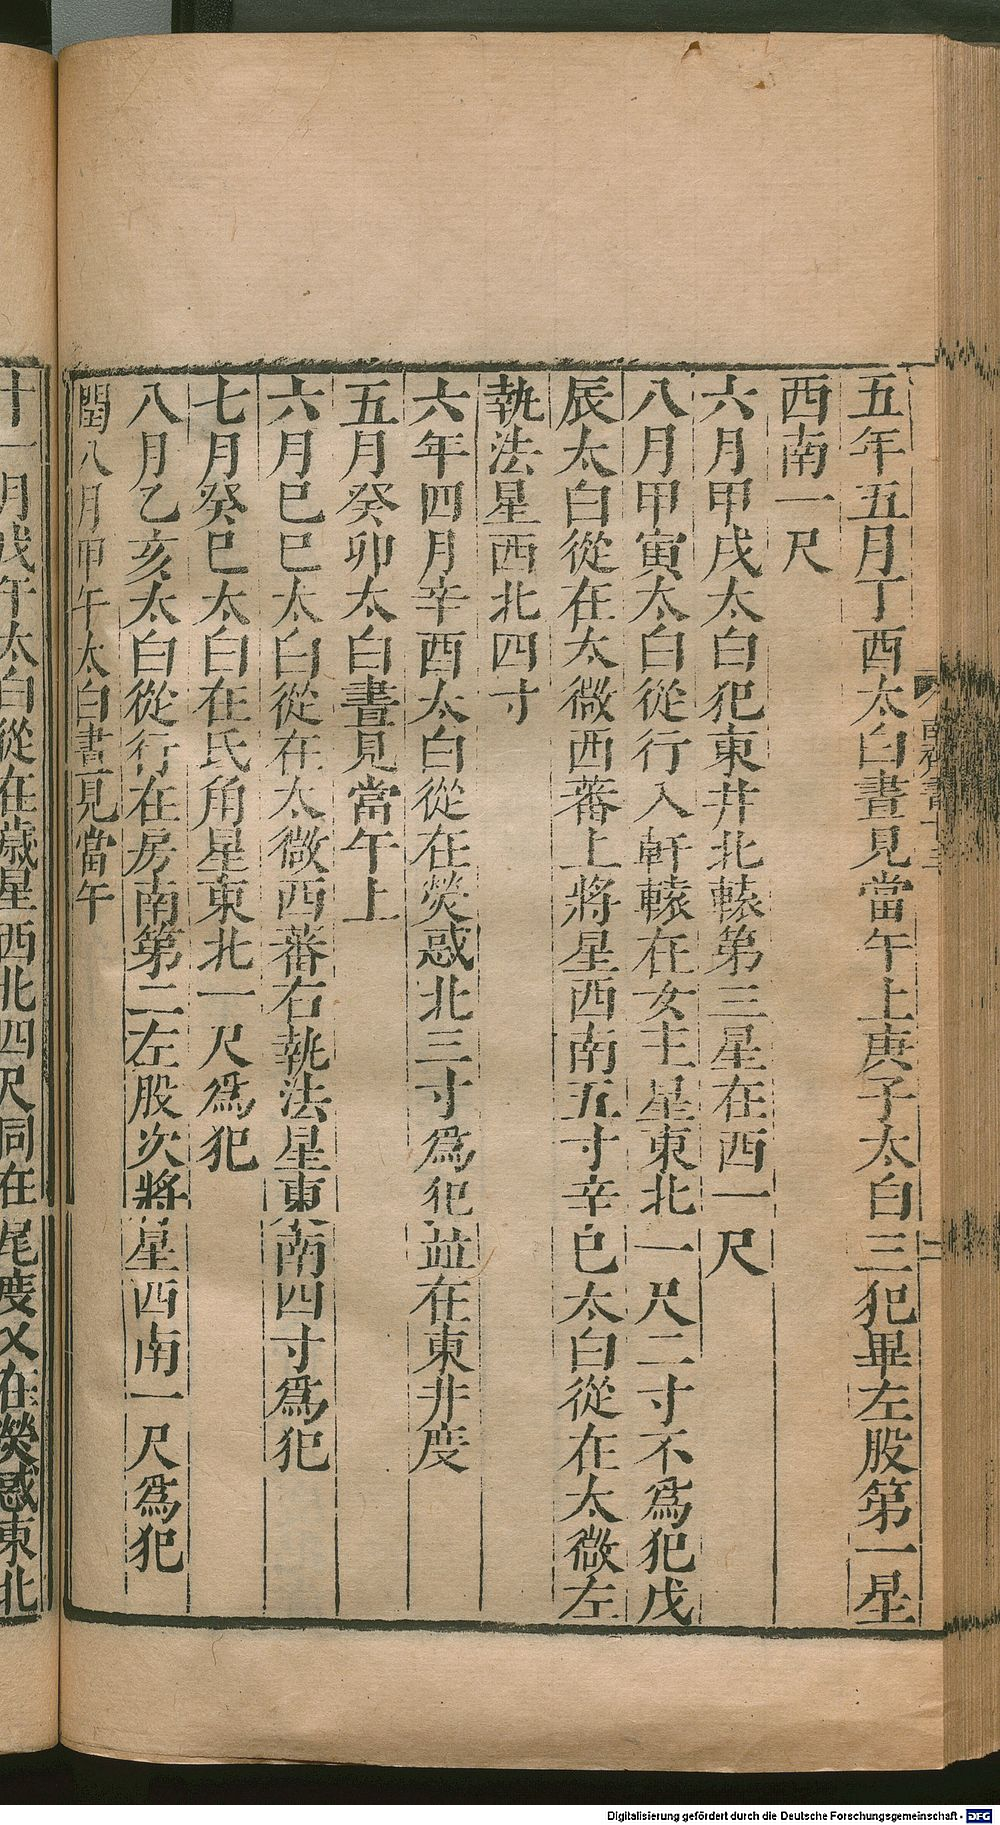 五年五月丁酉太白晝見當午上庚子太白三犯畢左股第一星
西南一尺
六月甲戌太白犯東井北轅第三星在西一尺
八月甲寅太白從行入軒轅在女主星東北一尺二寸不爲犯戊
辰太白從在太微西蕃上將星西南五寸辛巳太白從在太微左
執法星西北四寸
六年四月辛酉太白從在熒惑北三寸爲犯並在東井度
五月癸卯太白晝見當午上
六月巳巳太白從在太微西蕃右執法星東南四寸爲犯
七月癸巳太白在氐角星東北一尺爲犯
八月乙亥太白從行在房南第二左股次將星西南一尺爲犯
閏八月甲午太白晝見當午
十一月戊午太白從在歲星西北四尺同在尾度又在熒惑東北
Digitalisierung gefördert durch die Deutsche Forschungsgemeinschaft - DFG